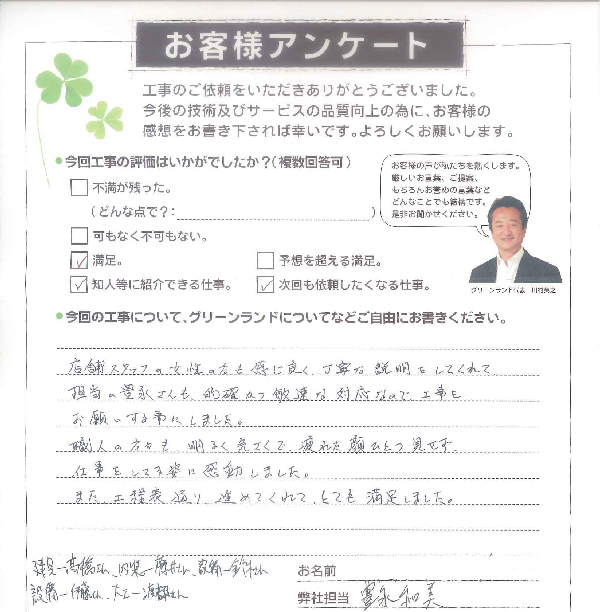 お客様アンケート
工事のご依頼をいただきありがとうございました。
今後の技術及びサービスの品質向上の為に、お客様の
感想をお書き下されば幸いです。よろしくお願いします。
●今回工事の評価はいかがでしたか？(複数回答可)
不満が残った。
(どんな点で？: )
可もなく不可もない。
満足。
予想を超える満足。
知人等に紹介できる仕事。
次回も依頼したくなる仕事。
お客様の声が私たちを熱くします。
厳しいお言葉、ご提案、
もちろんお誉めの言葉など
どんなことでも結構です。
是非お聞かせください。
グリーンランド代表
●今回の工事について、グリーンランドについてなどご自由にお書きください。
店舗スタッフの女性の方も感じ良く、丁寧な説明をしてくれて
担当の豊永さんも、的確かつ敏速な対応なので工事を
お願いする事にしました。
職人の方々も、明るく気さくで、疲れた顔ひとつ見せず、
仕事をしてる姿に感動しました。
また、工程表通り進めてくれて、とても満足しました。
建具ー高橋さん、内装ー
設備ー伊藤さん、大工ー
お名前
弊社担当 豊永和美